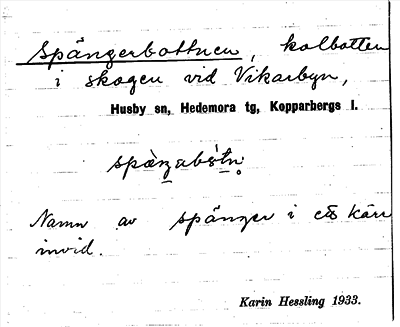 Spångerbottnen, kolbotten
i skogen vid Vikarbyn,
Husby sn, Hedemora tg, Kopparbergs l.
Namn av spånger i ett kärr
invid.
Karin Hessling 1933.